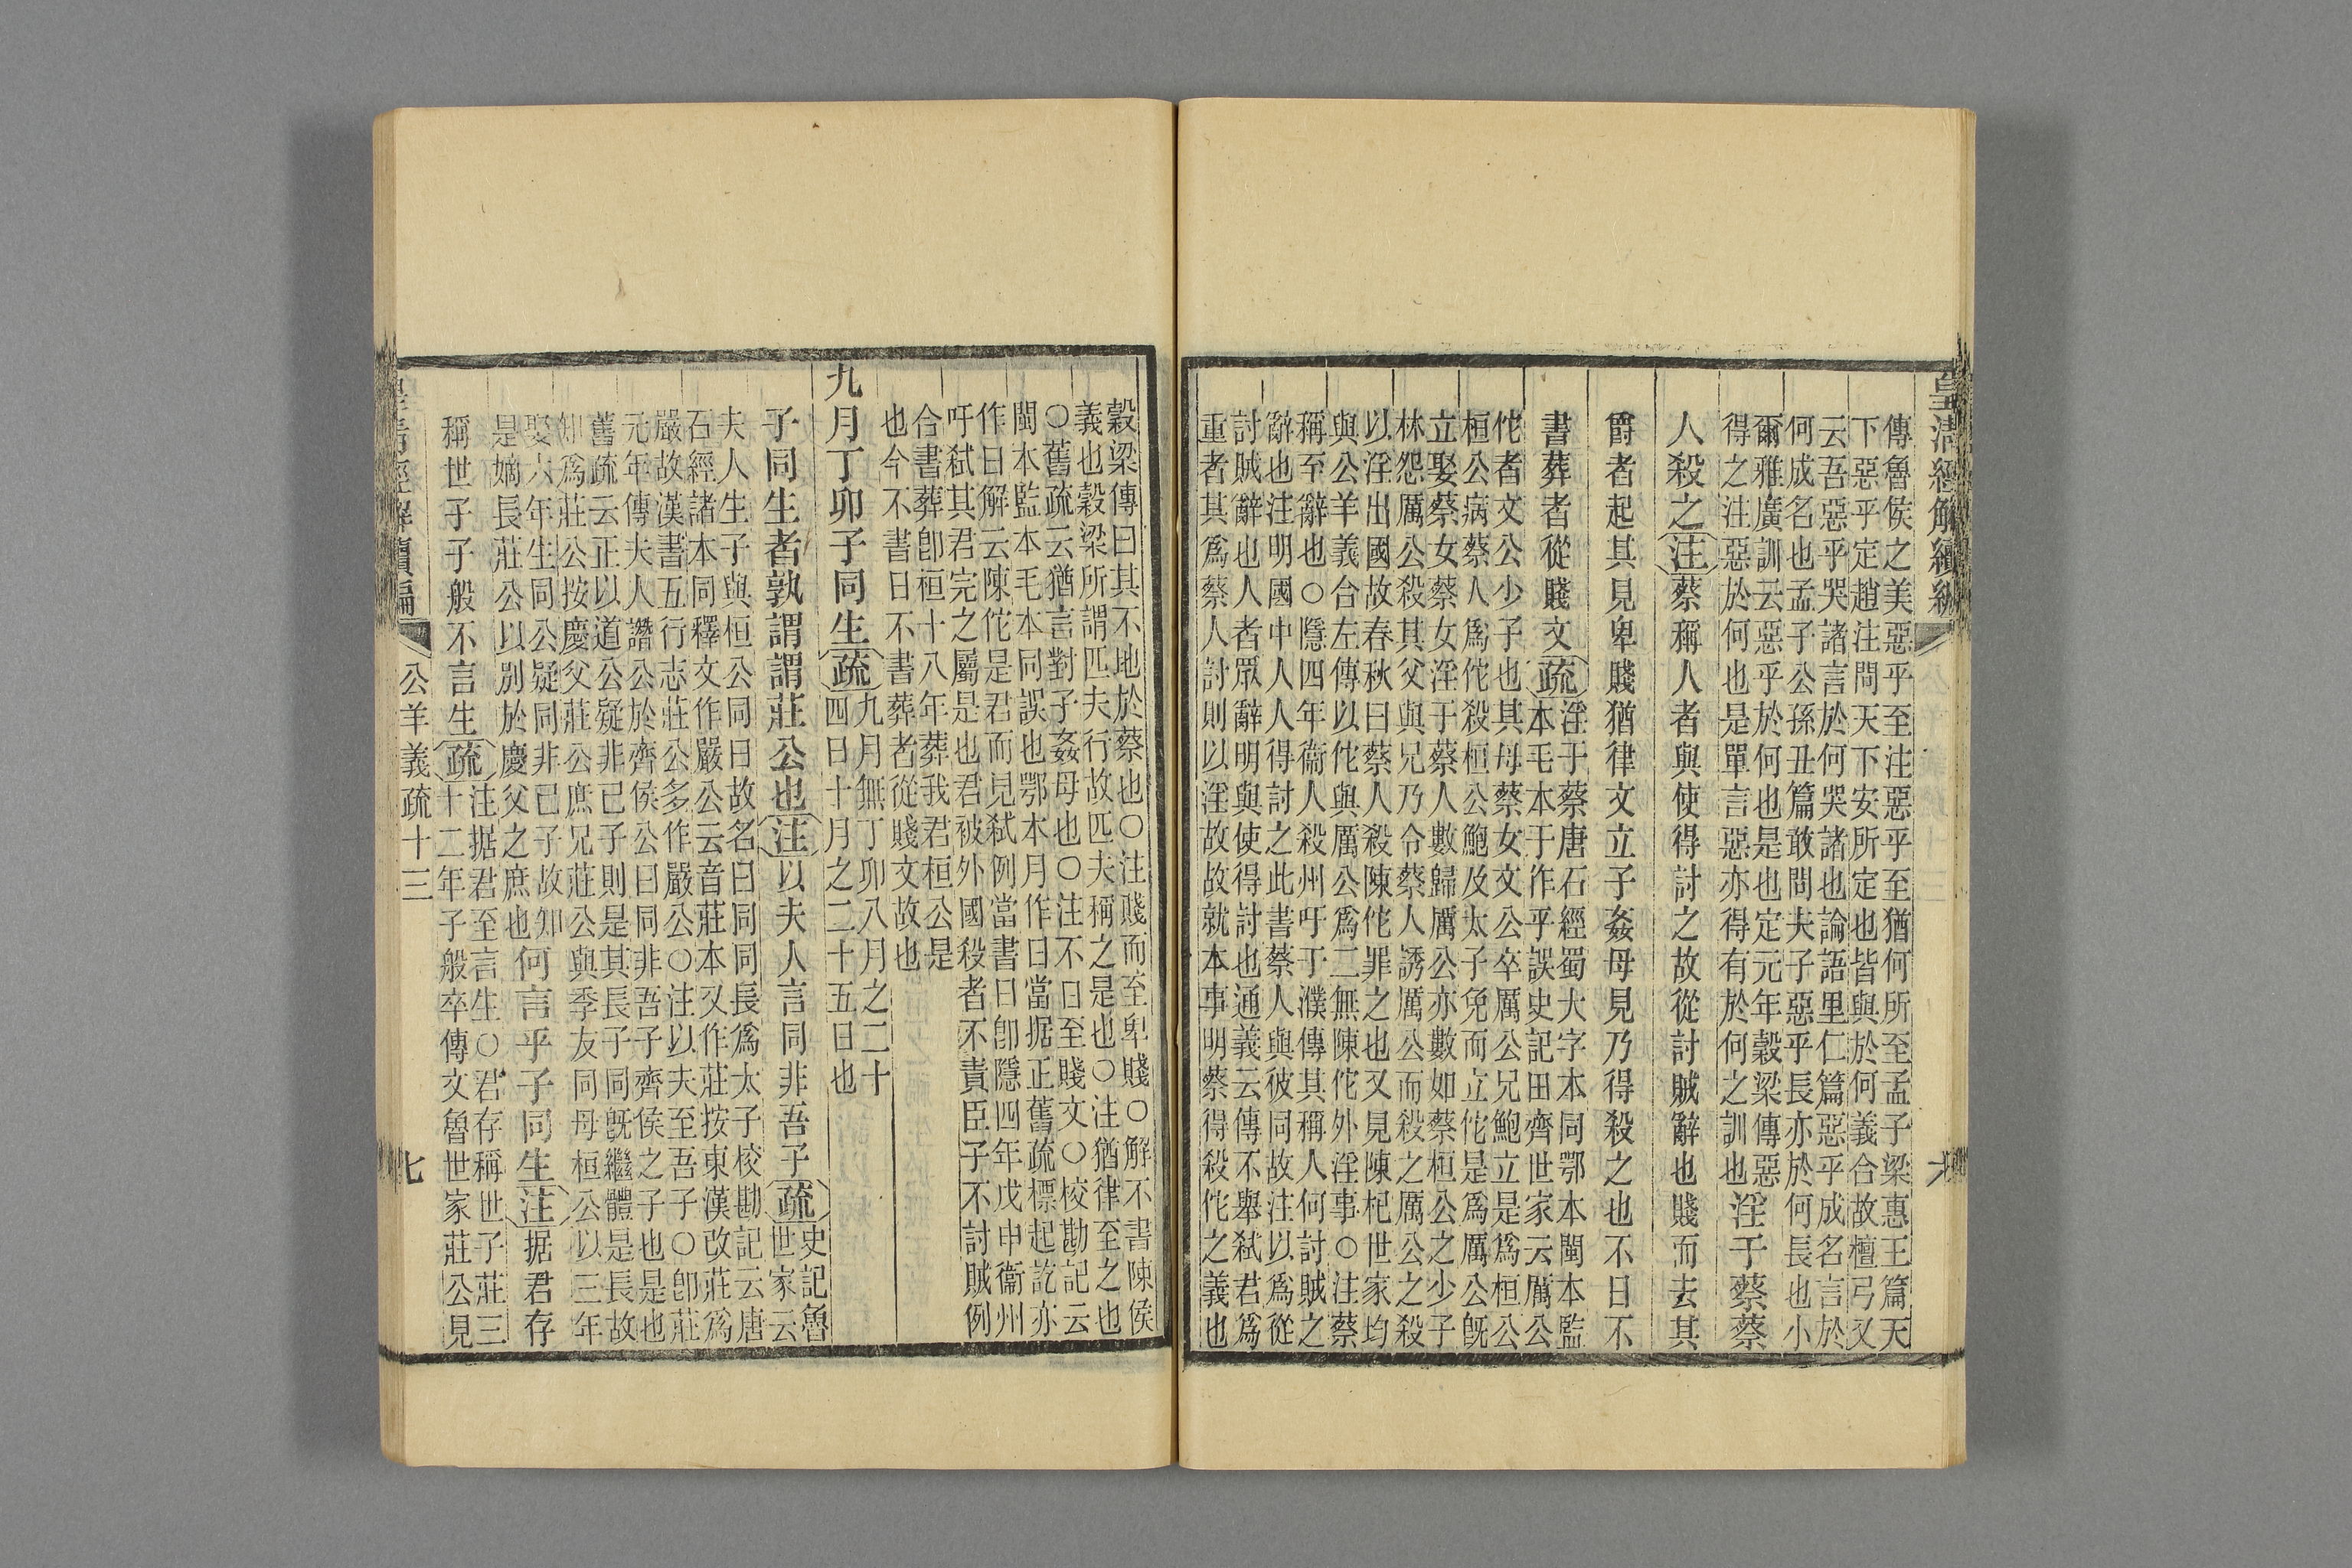 皇清經解續編
六
傳魯侯之美惡乎至注惡乎至猶何所至孟子梁惠王篇天
下惡乎定趙注問天下安所定也皆與於何義合故檀弓又
云吾惡乎哭諸言於何哭諸也論語里仁篇惡乎成名言於
何成名也孟子公孫丑篇敢問夫子惡乎長亦於何長也小
爾雅廣訓云惡乎於何也是也定元年穀梁傳惡
得之注惡於何也是單言惡亦得有於何之訓也
淫于蔡蔡
人殺之注蔡稱人者與使得討之故從討賊辭也賤而去其
爵者起其見卑賤猶律文立子姦母見乃得殺之也不日不
書葬者從賤文疏
淫于蔡唐石經蜀大字本同鄂本閩本監
本毛本于作乎誤史記田齊世家云厲公
佗者文公少子也其母蔡女文公卒厲公兄鮑立是爲桓公
桓公病蔡人爲佗殺桓公鮑及太子免而立佗是爲厲公旣
立娶蔡女蔡女淫于蔡人數歸厲公亦數如蔡桓公之少子
林怨厲公殺其父與兄乃令蔡人誘厲公而殺之厲公之殺
以淫出國故春秋曰蔡人殺陳佗罪之也又見陳杞世家均
與公羊義合左傳以佗與厲公爲二無陳佗外淫事○注蔡
稱至辭也○隱四年衞人殺州吁于濮傳其稱人何討賊之
辭也注明國中人人得討之此書蔡人與彼同故注以爲從
討賊辭也人者眾辭明與使得討也通義云傳不舉弒君爲
重者其爲蔡人討則以淫故故就本事明蔡得殺佗之義也
穀梁傳曰其不地於蔡也○注賤而至卑賤○解不書陳侯
義也穀梁所謂匹夫行故匹夫稱之是也○注猶律至之也
○舊疏云猶言對子姦母也○注不日至賤文○校勘記云
閩本監本毛本同誤也鄂本月作日當据正舊疏標起訖亦
作日解云陳佗是君而見弒例當書日卽隱四年戊申衞州
吁弒其君完之屬是也君被外國殺者不責臣子不討賊例
合書葬卽桓十八年葬我君桓公是
也今不書日不書葬者從賤文故也
九月丁卯子同生疏
九月無丁卯八月之二十
四日十月之二十五日也
子同生者孰謂謂莊公也注以夫人言同非吾子疏
史記魯
世家云
夫人生子與桓公同日故名曰同同長爲太子校勘記云唐
石經諸本同釋文作嚴公云音莊本又作莊按東漢改莊爲
嚴故漢書五行志莊公多作嚴公○注以夫至吾子○卽莊
元年傳夫人譖公於齊侯公曰同非吾子齊侯之子也是也
舊疏云正以道公疑非已子則是其長子同旣繼體是長故
知爲莊公按慶父莊公庶兄莊公與季友同母桓公以三年
娶六年生同公疑同非已子故知
是嫡長莊公以別於慶父之庶也
何言乎子同生注据君存
稱世子子般不言生疏
注据君至言生○君存稱世子莊三
十二年子般卒傳文魯世家莊公見
皇清經解續編
公羊義疏十三
七